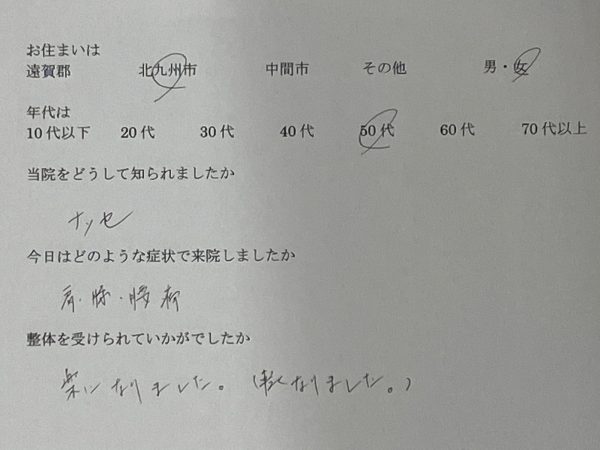 お住まいは
遠賀郡 北九州市 中間市 その他 男・女
年代は
10代以下 20代 30代 40代 50代 60代 70代以上
当院をどうして知られましたか
ナッセ
今日はどのような症状で来院しましたか
肩・膝・腰痛
整体を受けられていかがでしたか
楽になりました。(軽くなりました。)